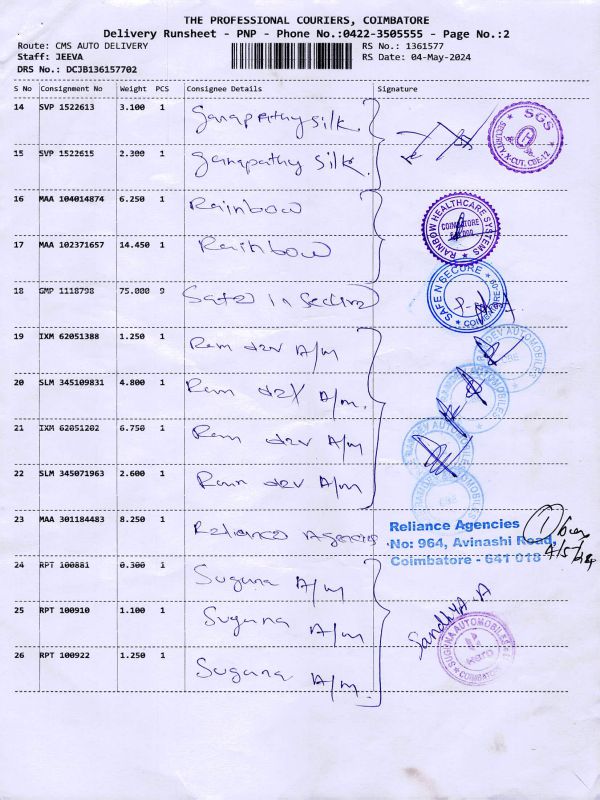 THE PROFESSIONAL COURIERS, COIMBATORE
Delivery Runsheet - PNP - Phone No.:0422-3505555 - Page No.:2
Route: CMS AUTO DELIVERY RS No.: 1361577
Staff: JEEVA RS Date: 04-May-2024
DRS No.: DCJB136157702
S No Consignment No Weight PCS Consignee Details Signature
14 SVP 1522613 3.100 1 Ganapathy silk.
SGS
15 SVP 1522615 2.300 1 Ganapathy silk.
16 MAA 104014874 6.250 1 Rainbow
RAINBOW HEALTHCARE SYSTEMS
COIMBATORE
17 MAA 102371657 14.450 1 Rainbow
18 GMP 1118798 75.000 9 Safe in Secure
SAFE N SECURE
19 IXM 62051388 1.250 1 Ram dev A/m
20 SLM 345109831 4.800 1 Ram dev A/m.
21 IXM 62051202 6.750 1 Ram dev A/m
22 SLM 345071963 2.600 1 Ram dev A/m
23 MAA 301184483 8.250 1 Reliance Agencies
Reliance Agencies
No: 964, Avinashi Road,
Coimbatore - 641 018
4/5/24
24 RPT 100881 0.300 1 Suguna A/m
25 RPT 100910 1.100 1 Suguna A/m
Sandhya.A
SUGUNA AUTOMOBILES
COIMBATORE
26 RPT 100922 1.250 1 Suguna A/m.